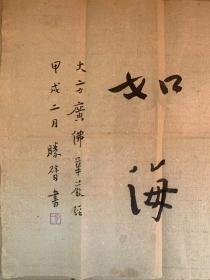 如
海
大方廣佛華嚴經
甲戌二月勝智書